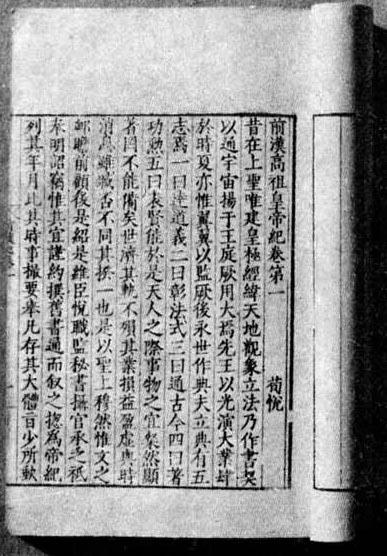 前漢高祖皇帝紀卷第一
荀悅
昔在上聖唯建皇極經緯天地觀象立法乃作書契
以通宇宙揚于王庭厥用大焉先王以光演大業肆
於時夏亦惟翼翼以監厥後永世作典夫立典有五
志焉一曰達道義二曰彰法式三曰通古今四曰著
功勲五曰表賢能於是天人之際事物之宜粲然顯
著罔不能備矣世濟其軌不殞其業損益盈虛與時
消息雖臧否不同其揆一也是以聖上穆然惟文之
郵瞻前顧後是紹是維臣悅職監秘書攝官承乏祗
奉明詔竊惟其宜謹約撰舊書通而叙之揔為帝紀
列其年月比其時事撮要舉凡存其大體旨少所缺